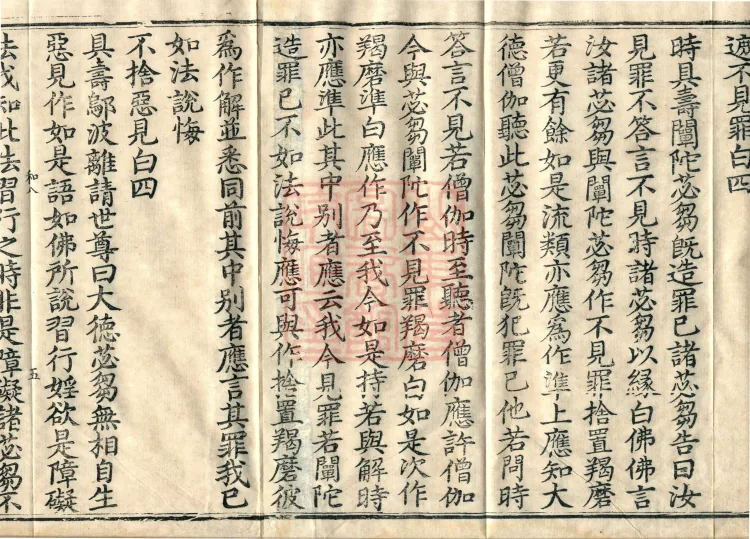 遮不見罪白四
時具壽闡陀苾芻旣造罪已諸苾芻告曰汝
見罪不答言不見時諸苾芻以緣白佛佛言
汝諸苾芻與闡陀苾芻作不見罪捨置羯磨
若更有餘如是流類亦應爲作準上應知大
德僧伽聽此苾芻闡陀旣犯罪已他若問時
答言不見若僧伽時至聽者僧伽應許僧伽
今與苾芻闡陀作不見罪羯磨白如是次作
羯磨準白應作乃至我今如是持若與解時
亦應準此其中别者應云我今見罪若闡陀
造罪已不如法說悔應可與作捨置羯磨彼
爲作解並悉同前其中别者應言其罪我已
如法說悔
不捨惡見白四
具壽鄔波離請世尊曰大德苾芻無相自生
惡見作如是語如佛所說習行婬欲是障礙
和八 五
法我知此法習行之時非是障礙諸苾芻不